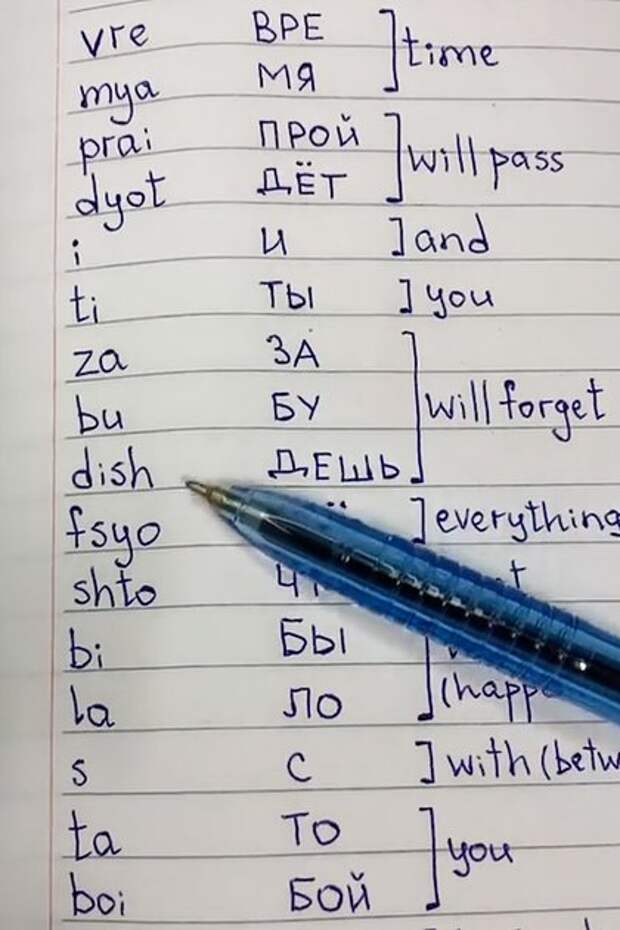 vre ВРЕ ] time
mya МЯ
prai ПРОЙ ] will pass
dyot ДЁТ
i И ] and
ti ТЫ ] you
za ЗА
bu БУ ] will forget
dish ДЕШЬ
fsyo ] everything
shto
bi БЫ
la ЛО ] (happe
s С ] with (betw
ta ТО ] you
boi БОЙ